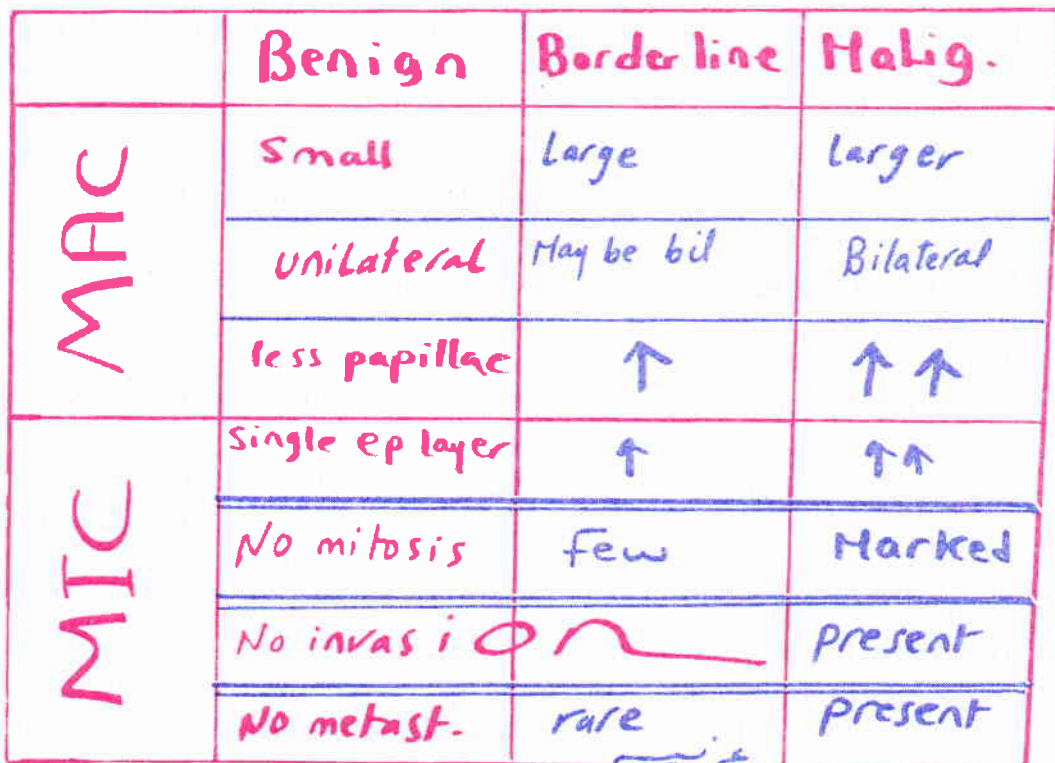 Benign Borderline Malig.
MAC
small large larger
unilateral May be bil Bilateral
less papillae ↑ ↑↑
MIC
single ep layer ↑ ↑↑
No mitosis few Marked
No invasion present
No metast. rare present